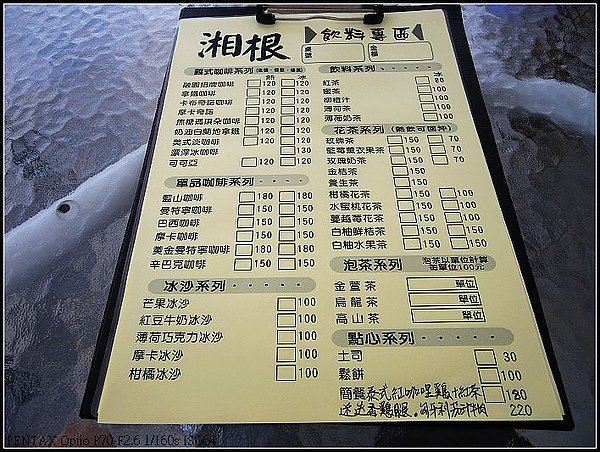 湘根 飲料專區
桌號 金額
義式咖啡系列
熱 冰
融園招牌咖啡 120 120
拿鐵咖啡 120 120
卡布奇諾咖啡 120 120
摩卡奇諾 120 120
焦糖瑪琪朵咖啡 120 120
奶油白蘭地拿鐵 120 120
美式淡咖啡 120 120
漂浮冰咖啡 130
可可亞 120 120
單品咖啡系列
藍山咖啡 180 180
曼特寧咖啡 150 150
巴西咖啡 150 150
摩卡咖啡 150 150
黃金曼特寧咖啡 180 180
辛巴克咖啡 150 150
冰沙系列
芒果冰沙 100
紅豆牛奶冰沙 100
薄荷巧克力冰沙 100
摩卡冰沙 100
柑橘冰沙 100
飲料系列
冰
紅茶 80
蜜茶 100
柳橙汁 100
薄荷茶 100
薄荷奶茶 100
花茶系列(熱飲可回沖)
玫瑰茶 150 70
藍莓薰衣果茶 150 70
玫瑰奶茶 150 70
金桔茶 150
養生茶 150
柑橘花茶 150 100
水蜜桃花茶 150 100
蔓越莓花茶 150 100
白柚鮮桔茶 150 100
白柚水果茶 150 100
泡茶系列 泡茶以單位計算
每單位100元
金萱茶 單位
烏龍茶 單位
高山茶 單位
點心系列
土司 30
鬆餅 100
簡餐 泰式紅咖哩雞+紅茶 180
迷迭香雞腿. 匈牙利 牛肉 220
PENTAX Optio P70-F2.6 1/160s ISO64